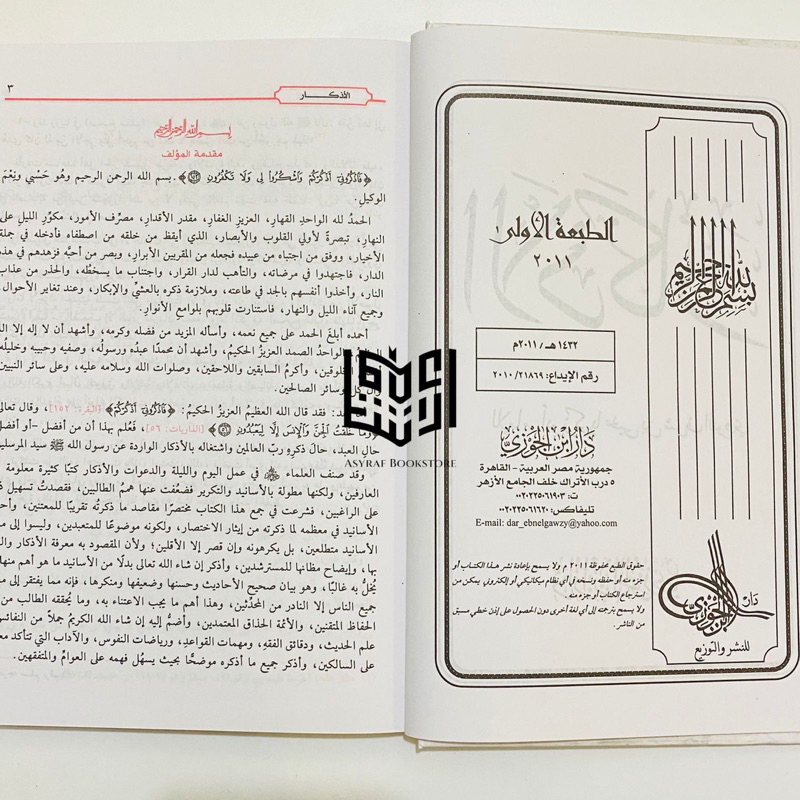 الطبعة الأولى
٢٠١١
١٤٣٢ هـ / ٢٠١١م
رقم الإيداع: ٢٠١٠/٢١٨٦٩
دار ابن الجوزي
جمهورية مصر العربية - القاهرة
٥ درب الأتراك خلف الجامع الأزهر
ت: ٠٠٢٠٢٢٥٠٦١٩٠٣
تليفاكس: ٠٠٢٠٢٢٥٠٦١٦٢٠
E-mail: dar_ebnelgawzy@yahoo.com
حقوق الطبع محفوظة ٢٠١١ م ولا يسمح بإعادة نشر هذا الكتاب أو
جزء منه أو حفظه ونسخه في أي نظام ميكانيكي أو إلكتروني يمكن من
استرجاع الكتاب أو جزء منه.
ولا يسمح بترجمته إلى أي لغة أخرى دون الحصول على إذن خطي مسبق
من الناشر.
بسم الله الرحمن الرحيم
دار
ابن الجوزي
للنشر والتوزيع
الأذكـــــار
٣
بسم الله الرحمن الرحيم
مقدمة المؤلف
﴿فَاذْكُرُونِي أَذْكُرْكُمْ وَاشْكُرُوا لِي وَلَا تَكْفُرُونِ ﴿١٥٢﴾﴾. بسم الله الرحمن الرحيم وهو حَسْبي ونِعْمَ
الوكيل.
الحمدُ لله الواحدِ القهارِ، العزيزِ الغفارِ، مقدر الأقدارِ، مصرِّف الأمور، مكوِّر الليلِ على
النهارِ، تبصرةً لأولي القلوب والأبصار، الذي أيقظ من خلقه من اصطفاه فأدخله في جملة
الأخيار، ووفق من اجتباه من عبيده فجعله من المقربين الأبرار، وبصر من أحبَّه فزهدهم في هذه
الدار، فاجتهدوا في مرضاته، والتأهب لدار القرار، واجتناب ما يسخطُه، والحذر من عذاب
النار، وأخذوا أنفسهم بالجد في طاعته، وملازمة ذكره بالعشيِّ والإبكار، وعند تغاير الأحوال
وجميع آناء الليل والنهار، فاستنارت قلوبهم بلوامع الأنوار.
أحمده أبلغَ الحمد على جميع نعمه، وأسأله المزيد من فضله وكرمه، وأشهد أن لا إله إلا الله
الواحدُ الصمد العزيزُ الحكيمُ، وأشهد أن محمدًا عبدُه ورسولُه، وصفيه وحبيبه وخليلُه
المخلوقين، وأكرمُ السابقين واللاحقين، وصلوات الله وسلامه عليه، وعلى سائر النبيين
وآل كل وسائر الصالحين.
بعد: فقد قال الله العظيمُ العزيزُ الحكيمُ: ﴿فَاذْكُرُونِي أَذْكُرْكُمْ﴾ [البقرة: ١٥٢]، وقال تعالى
﴿وَمَا خَلَقْتُ الْجِنَّ وَالْإِنسَ إِلَّا لِيَعْبُدُونِ ﴿٥٦﴾﴾ [الذاريات: ٥٦]، فَعُلم بهذا أن من أفضل -أو أفضل
حالِ العبد، حالَ ذكره ربَّ العالمين واشتغاله بالأذكار الواردة عن رسول الله ﷺ سيد المرسلين
وقد صنف العلماء في عمل اليوم والليلة والدعوات والأذكار كتبًا كثيرة معلومة
العارفين، ولكنها مطولة بالأسانيد والتكرير فضعُفت عنها هممُ الطالبين، فقصدتُ تسهيل ذ
على الراغبين، فشرعت في جمع هذا الكتاب مختصرًا مقاصد ما ذكرتُه تقريبًا للمعتنين، وأحذ
الأسانيد في معظمه لما ذكرته من إيثار الاختصار، ولكونه موضوعًا للمتعبدين، وليسوا إلى مع
الأسانيد متطلعين، بل يكرهونه وإن قصر إلا الأقلين؛ ولأن المقصود به معرفة الأذكار والعـ
بها، وإيضاح مظانها للمسترشدين، وأذكر إن شاء الله تعالى بدلًا من الأسانيد ما هو أهم منها
يُخلُّ به غالبًا، وهو بيان صحيح الأحاديث وحسنها وضعيفها ومنكرها، فإنه مما يفتقر إلى مع
جميع الناس إلا النادر من المحدِّثين، وهذا أهم ما يجب الاعتناء به، وما يُحققه الطالب من
الحفاظ المتقنين، والأئمة الحذاق المعتمدين، وأضمُّ إليه إن شاء الله الكريمُ جملًا من النفائس
علم الحديث، ودقائق الفقهِ، ومهمات القواعدِ، ورياضات النفوس، والآداب التي تتأكد معر
على السالكين، وأذكر جميع ما أذكره موضحًا بحيث يسهُل فهمه على العوامِّ والمتفقهين.
ASYRAF BOOKSTORE